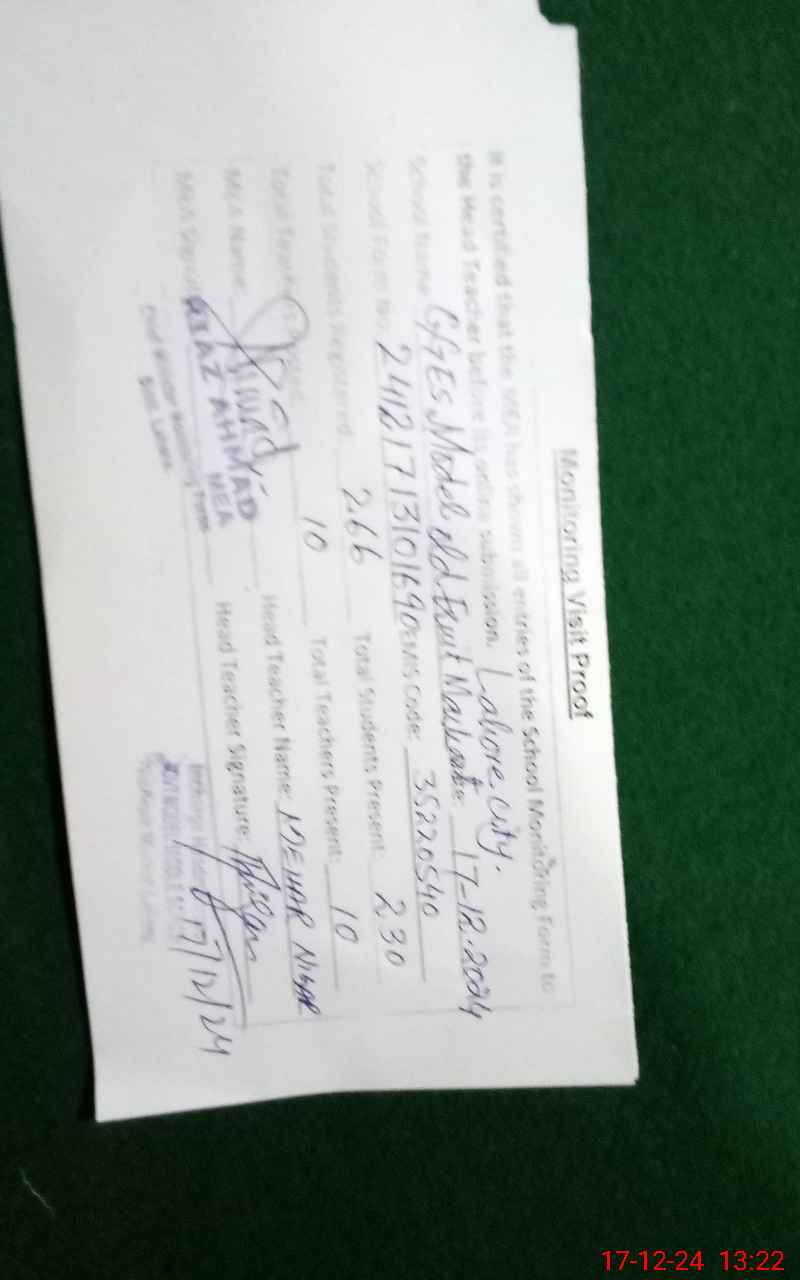 Monitoring Visit Proof
It is certified that the MEA has shown all entries of the School Monitoring Form to
the Head Teacher before its online submission. Lahore City.
School Name: GGES Model old Fruit Market Date: 17-12-2024
School Form No: 24121713101690 EMIS Code: 35220540
Total Students Registered: 266 Total Students Present: 230
Total Teachers 10 Total Teachers Present: 10
MEA Name: Head Teacher Name: MEHAR NIGAR
MEA Signature Head Teacher Signature:
AHMAD
MEA
Chief Minister Monitoring Force
Distt. Lahore
17/12/24
17-12-24 13:22